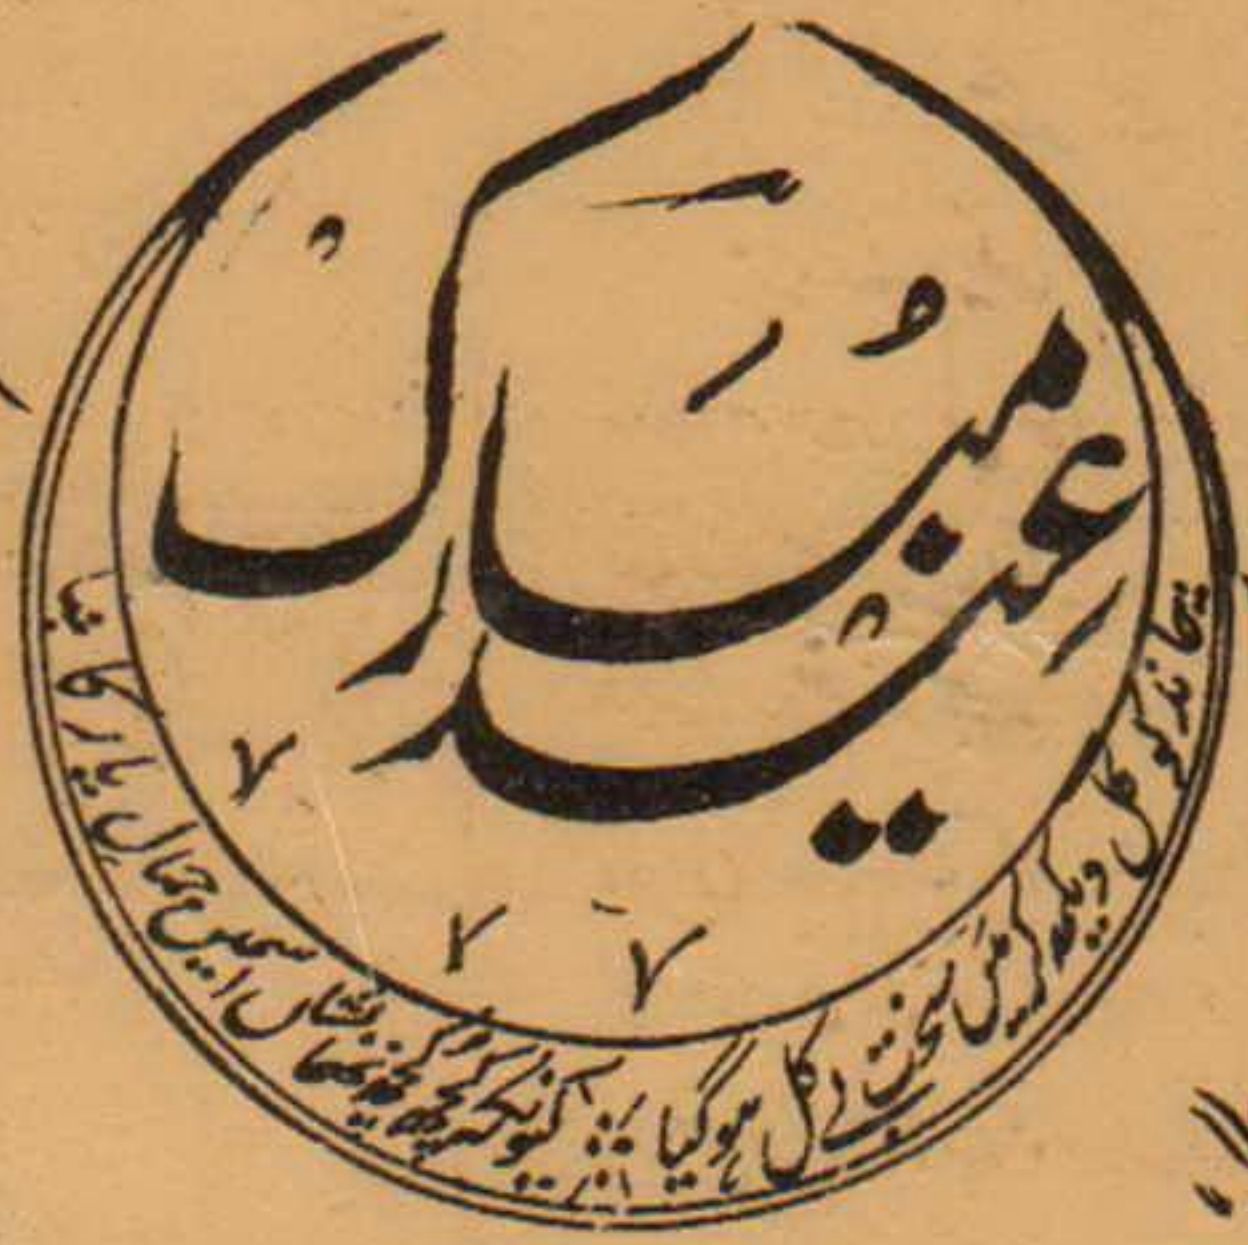 عِید مُبَارک
چاند کو کل دیکھ کر میں سخت بے کل ہو گیا
کیونکہ کچھ کچھ تھا نشاں اس میں جمالِ یار کا